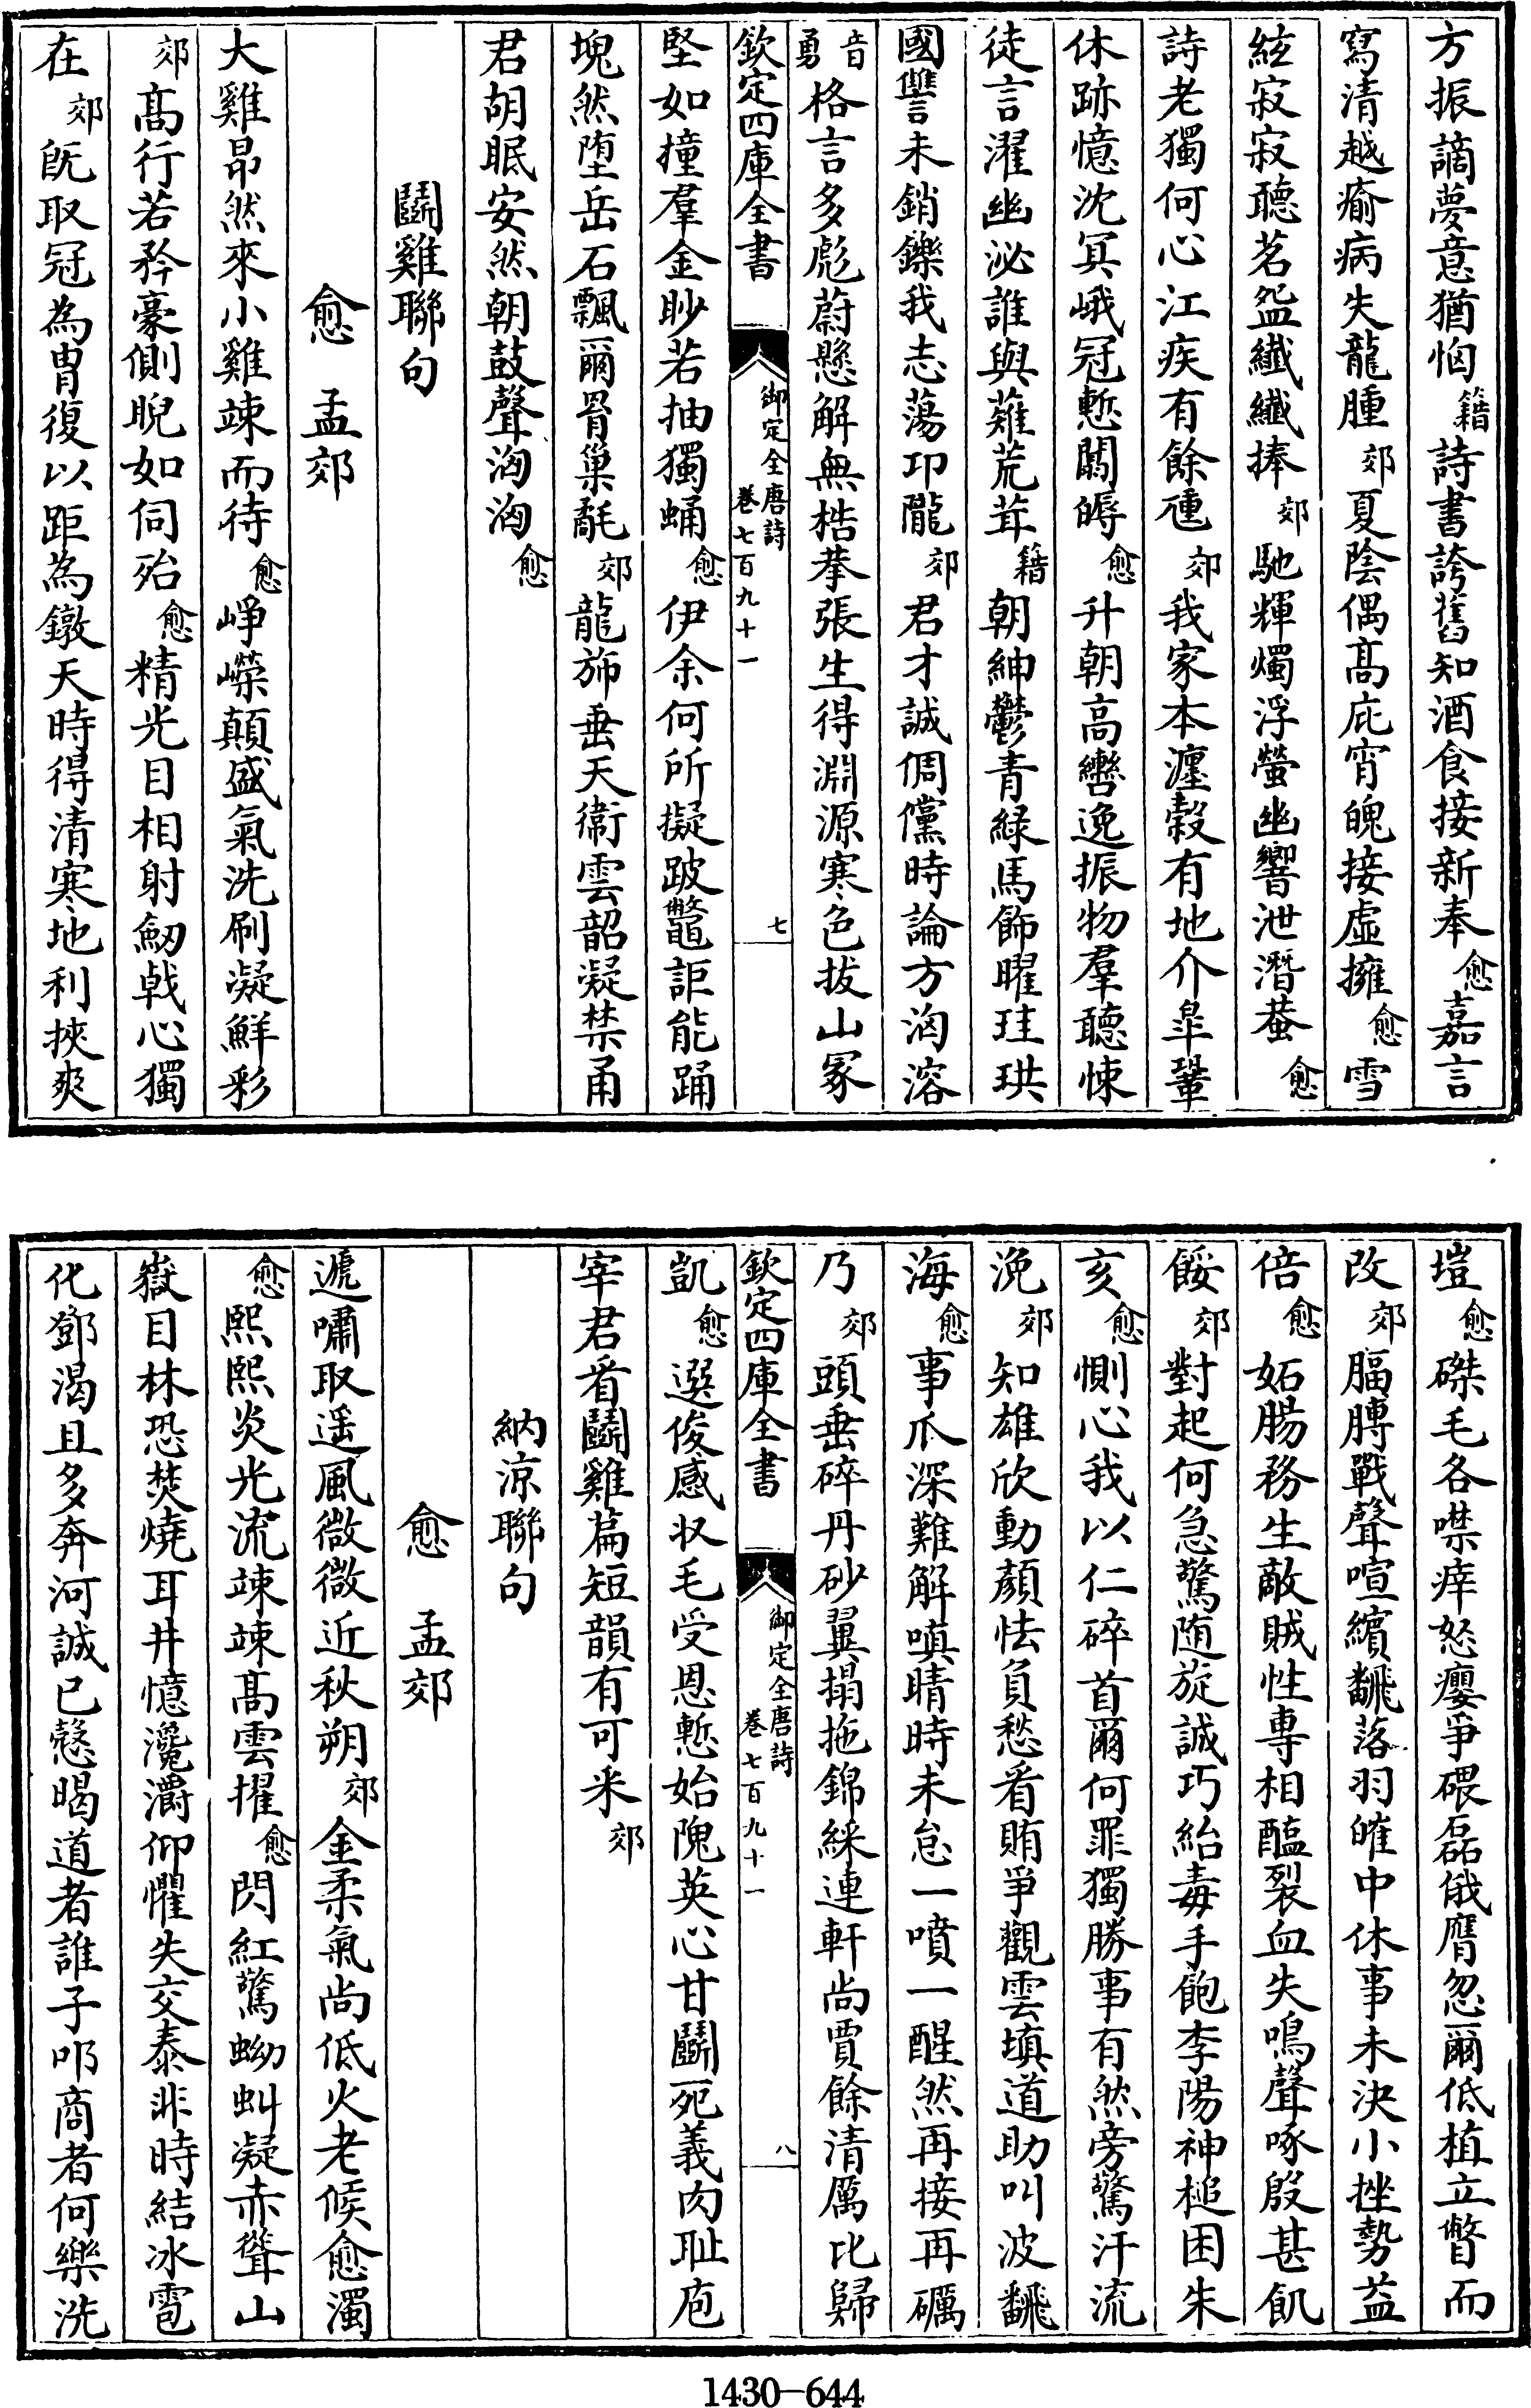 方振謫夢意猶恟籍詩書誇舊知酒食接新奉愈嘉言
寫清越瘉病失肬腫郊夏陰偶高庇宵魄接虛擁愈雪
絃寂寂聽茗盌纖纖捧郊馳輝燭浮螢幽響泄潛蛬愈
詩老獨何心江疾有餘尰郊我家本瀍穀有地介臯鞏
休跡憶沈冥峨冠慙闒㗫愈升朝高轡逸振物羣聽悚
徒言濯幽泌誰與薙荒茸籍朝紳鬱青緑馬飾曜珪珙
國讐未銷鑠我志蕩卭隴郊君才誠倜儻時論方洶溶
音勇格言多彪蔚懸解無梏拲張生得淵源寒色拔山冢
欽定四庫全書 御定全唐詩 卷七百九十一 七
堅如撞羣金眇若抽獨蛹愈伊余何所擬跛鼈詎能踊
塊然堕岳石飄爾罥巢氄郊龍斾垂天衞雲韶凝禁甬
君胡眠安然朝鼓聲洶洶愈
鬭雞聯句
愈 孟郊
大雞昻然來小雞竦而待愈崢嶸顛盛氣洗刷凝鮮彩
郊髙行若矜豪側睨如伺殆愈精光目相射劒戟心獨
在郊旣取冠為胄復以距為鐓天時得清寒地利挾爽
塏愈磔毛各噤痒怒癭爭碨磊俄膺忽爾低植立瞥而
改郊腷膊戰聲喧繽翻落羽皠中休事未決小挫勢益
倍愈妬腸務生敵賊性専相醢裂血失鳴聲啄殷甚飢
餒郊對起何急驚随旋誠巧紿毒手飽李陽神槌困朱
亥愈惻心我以仁碎首爾何罪獨勝事有然旁驚汗流
浼郊知雄欣動顔怯負愁看賄爭觀雲填道助叫波翻
海愈事爪深難解嗔睛時未怠一噴一醒然再接再礪
乃郊頭垂碎丹砂翼搨拖錦綵連軒尚賈餘清厲比歸
欽定四庫全書 御定全唐詩 卷七百九十一 八
凱愈選俊感收毛受恩慙始隗英心甘鬭死義肉耻庖
宰君看鬭雞篇短韻有可采郊
納涼聯句
愈 孟郊
遞嘯取遥風微微近秋朔郊金柔氣尚低火老候愈濁
愈熙熙炎光流竦竦髙雲擢愈閃紅驚蚴虯凝赤聳山
嶽目林恐焚燒耳井憶瀺灂仰懼失交泰非時結冰雹
化鄧渴且多奔河誠已慤暍道者誰子叩商者何樂洗
1430-644